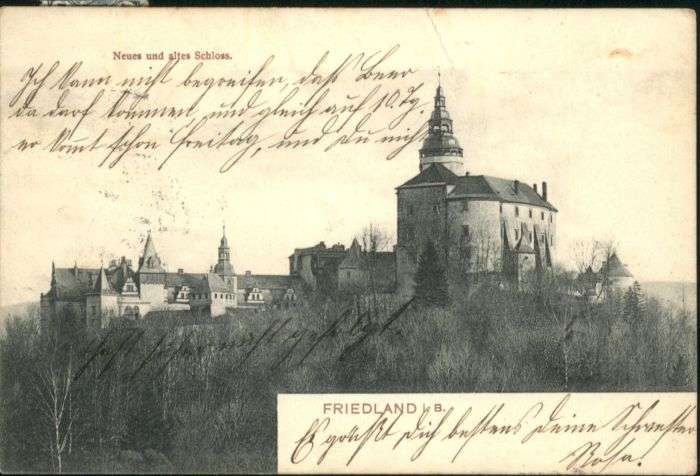 Neues und altes Schloss.
Ich kann nicht begreifen, daß Beer
da darf kommen, und gleich auf 10 Tg.
er komt schon Freitag, und du mich
hast sicher nicht gefolgt.
FRIEDLAND i. B.
Es grüßt dich bestens Deine Schwester
Rosa!